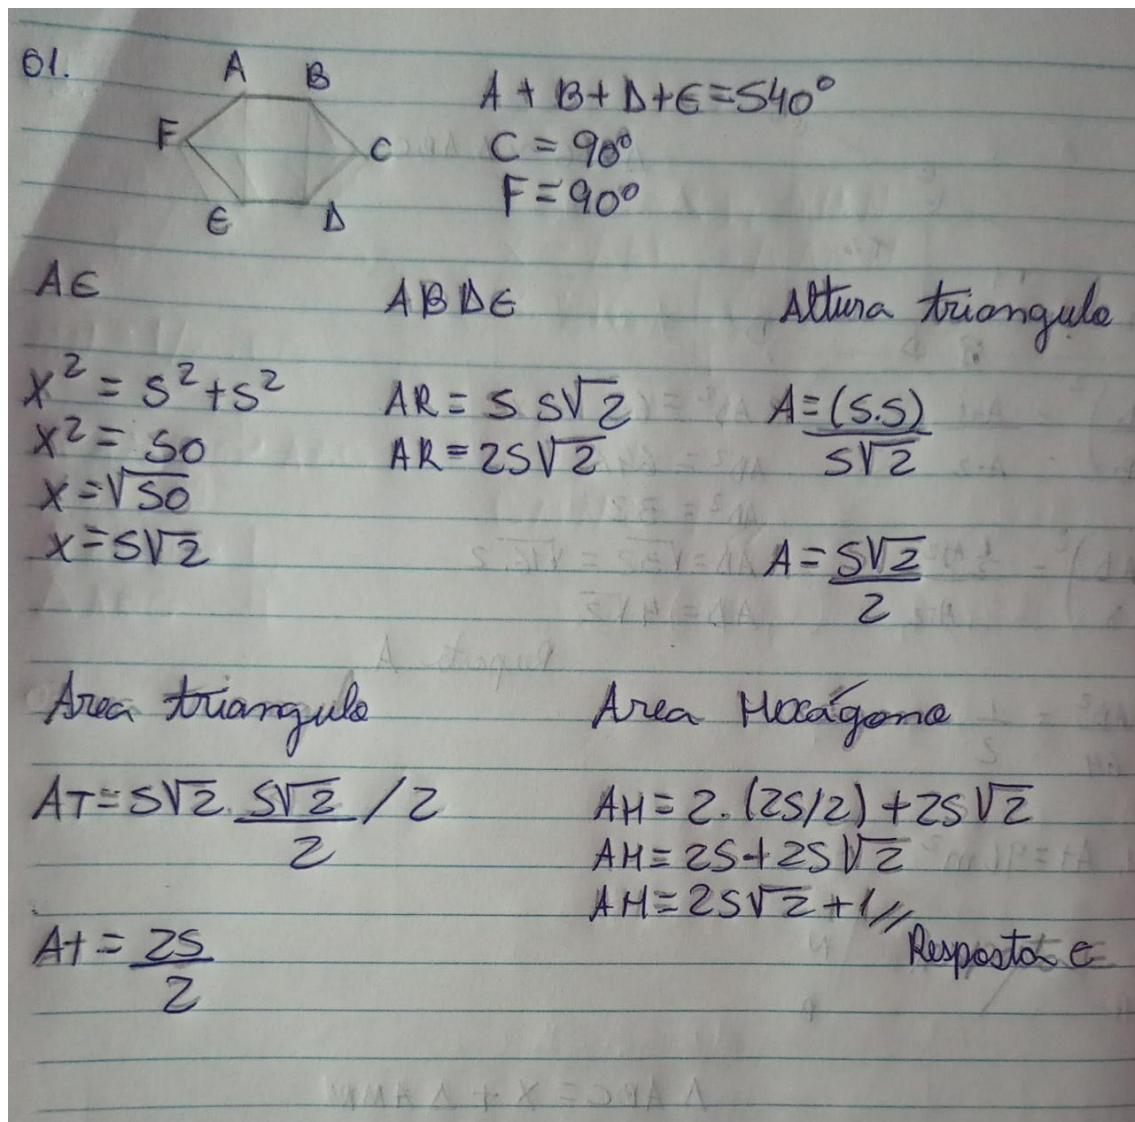 01.
A B
F C
E D
A + B + D + E = 540°
C = 90°
F = 90°
AE
x² = 5² + 5²
x² = 50
x = √50
x = 5√2
ABDE
AR = 5 5√2
AR = 25√2
Altura triangulo
A = (5.5)
5√2
A = 5√2
2
Area triangulo
AT = 5√2 . 5√2 / 2
2
At = 25
2
Area Hexágono
AH = 2 . (25/2) + 25√2
AH = 25 + 25√2
AH = 25√2 + 1//
Resposta E